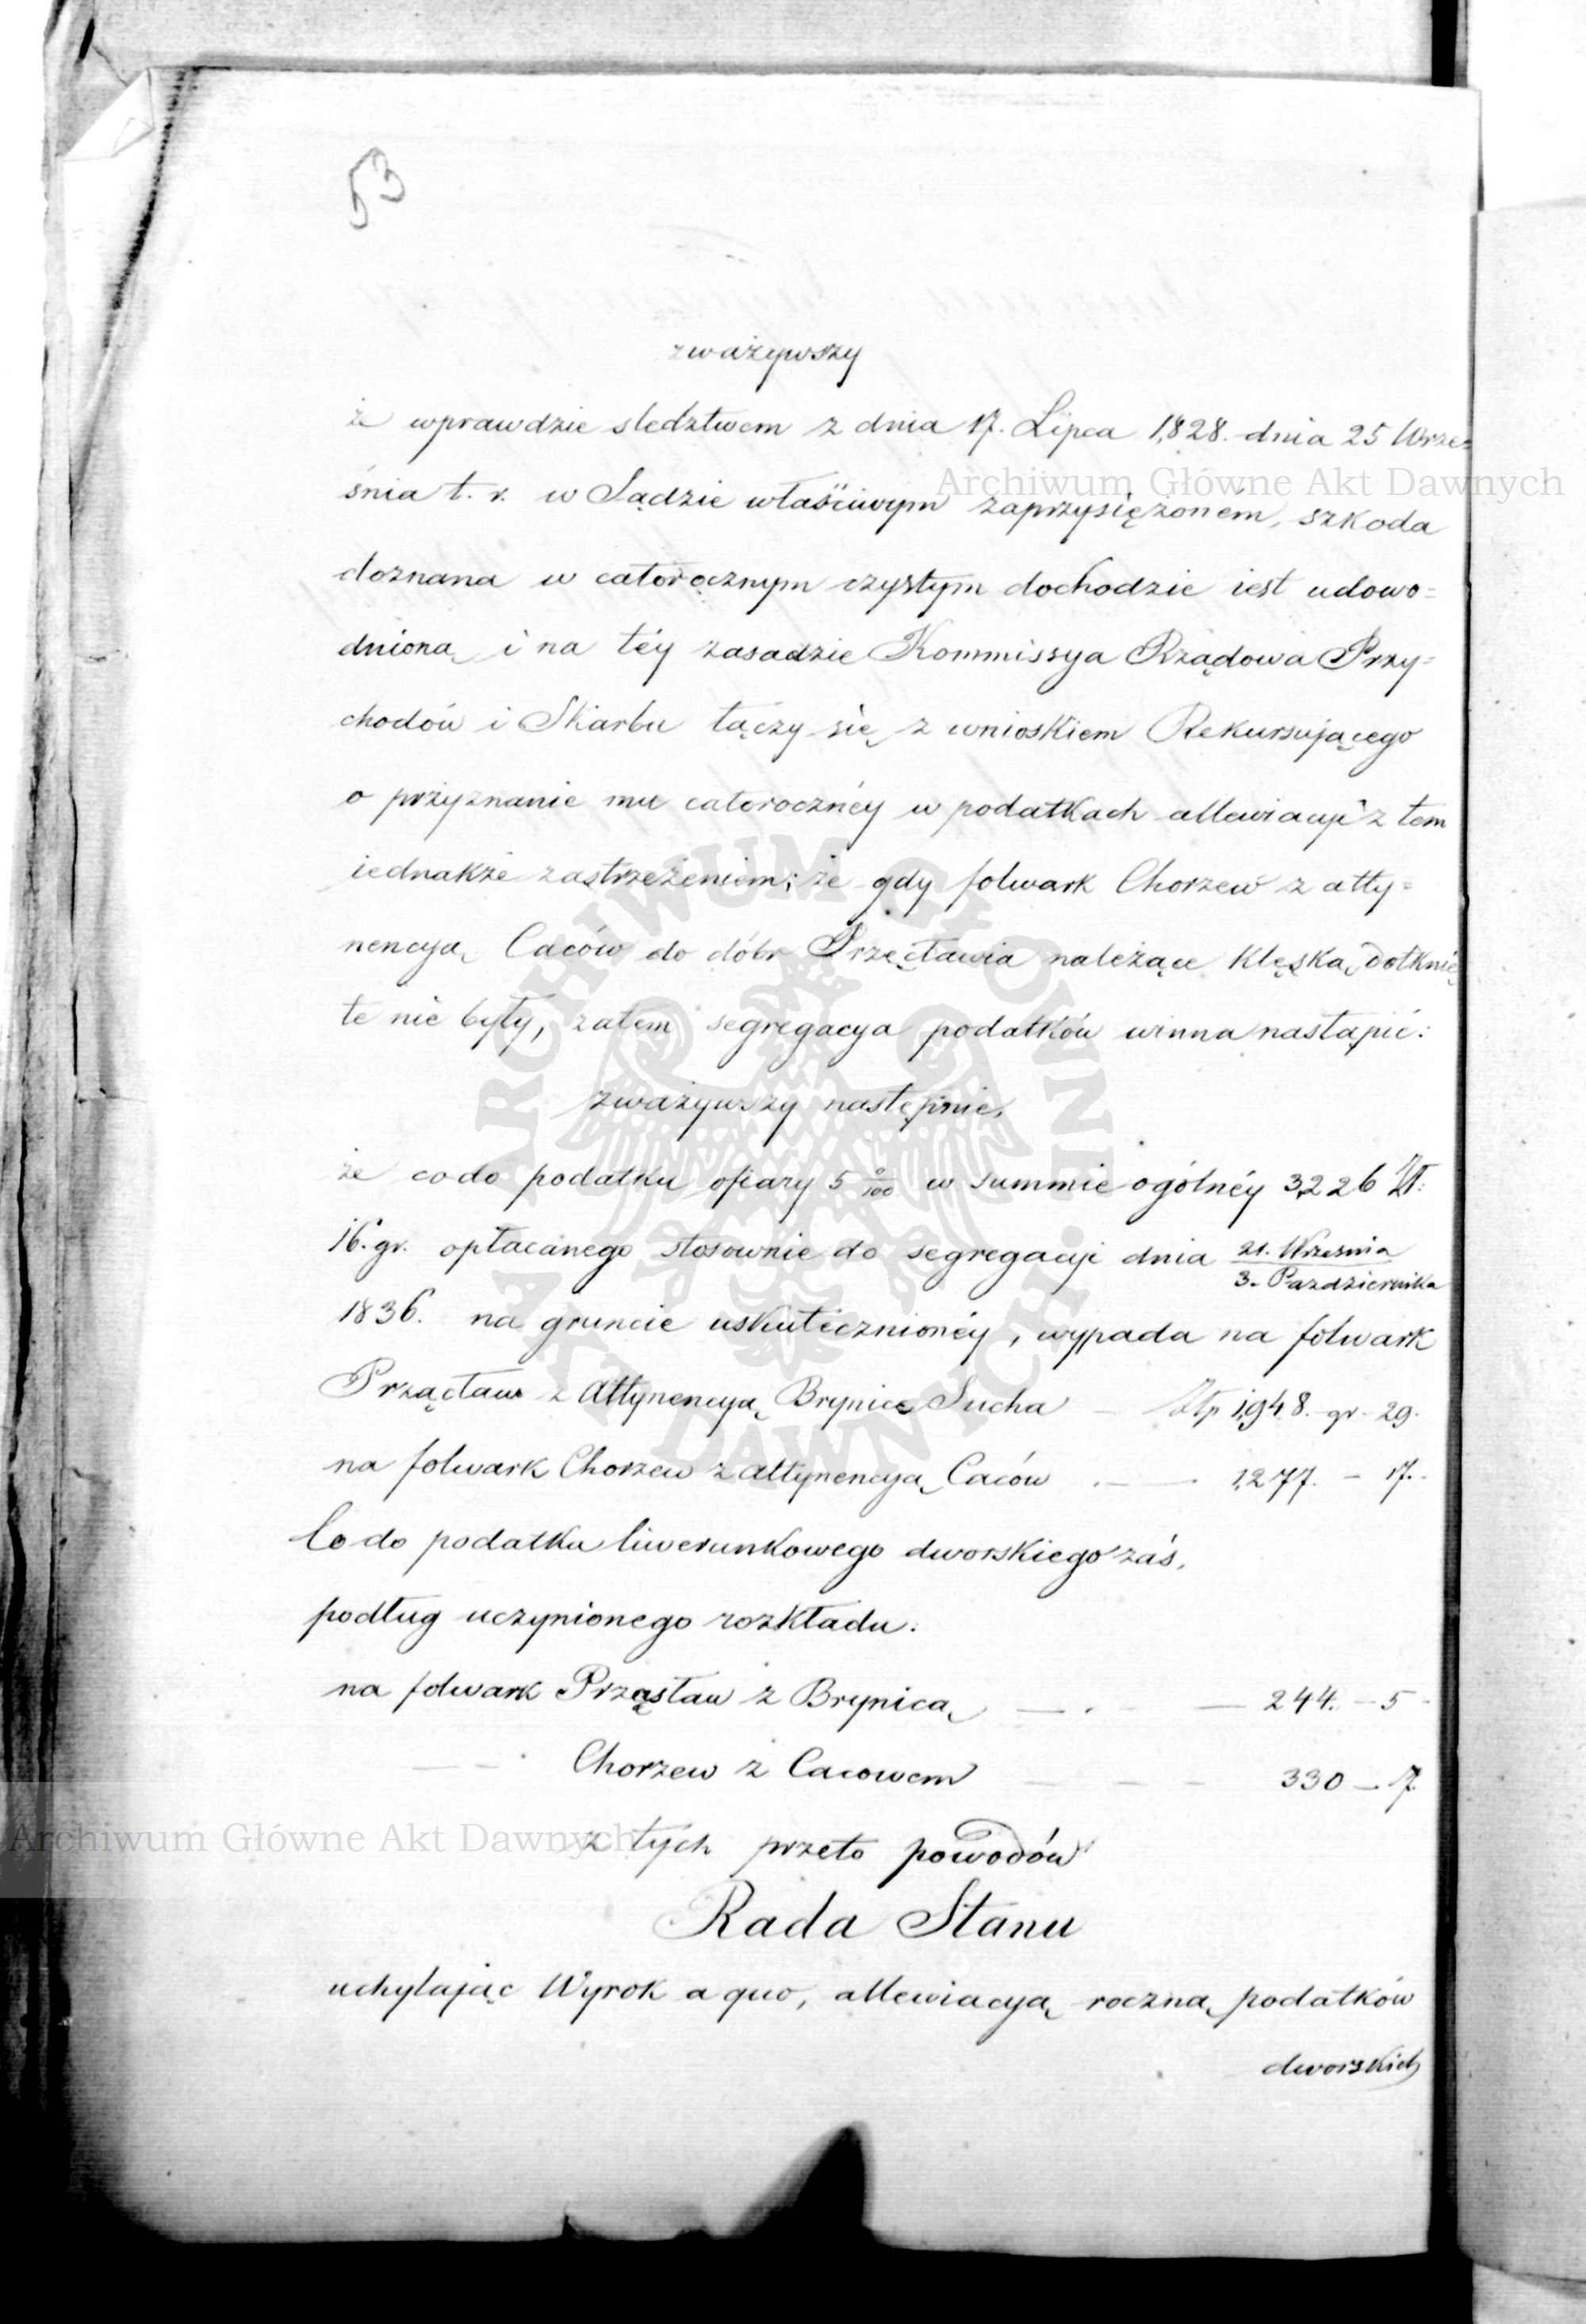 53
zważywszy
że wprawdzie sledztwem z dnia 17. Lipca 1,828. dnia 25 Wrze=
śnia t. r. w Sądzie właściwym zaprzysiężoném, szkoda
doznana w całorocznym czystym dochodzie iest udowo=
dnioną, i na téy zasadzie Kommissya Rządowa Przy=
chodów i Skarbu łączy się z wnioskiem Rekursującego
o przyznanie mu całorocznéy w podatkach allewiacyi z tem
iednakże zastrzeżeniem; że gdy folwark Chorzew z atty=
nencyą Caców do dóbr Przecławia należące klęską dotknię
te nie były, zatem segregacya podatków winna nastąpić:
zważywszy następnie,
że co do podatku ofiary 5 0/100 w summie ogólnéy 3,226 Zł:
16. gr. opłacanego stosownie do segregacyi dnia 21. Września
3. Pazdziernika
1836. na gruncie uskutecznionéy, wypada na folwark
Przącław z Attynencyą Brynica Sucha — Złp 1,948. gr - 29.
na folwark Chorzew z attynencyą Caców . — — 1,277. — 17.
Co do podatku liwerunkowego dworskiego zaś,
podług uczynionego rozkładu:
na folwark Prząsław z Brynicą — . — — 244. — 5 -
— — Chorzew z Cacowem — — 330 — 7.
z tych przeto powodów
Rada Stanu
uchylając Wyrok a quo, allewiacyą roczną podatków
dworskich
Archiwum Główne Akt Dawnych
Archiwum Główne Akt Dawnych
ARCHIWUM GŁÓWNE AKT DAWNYCH